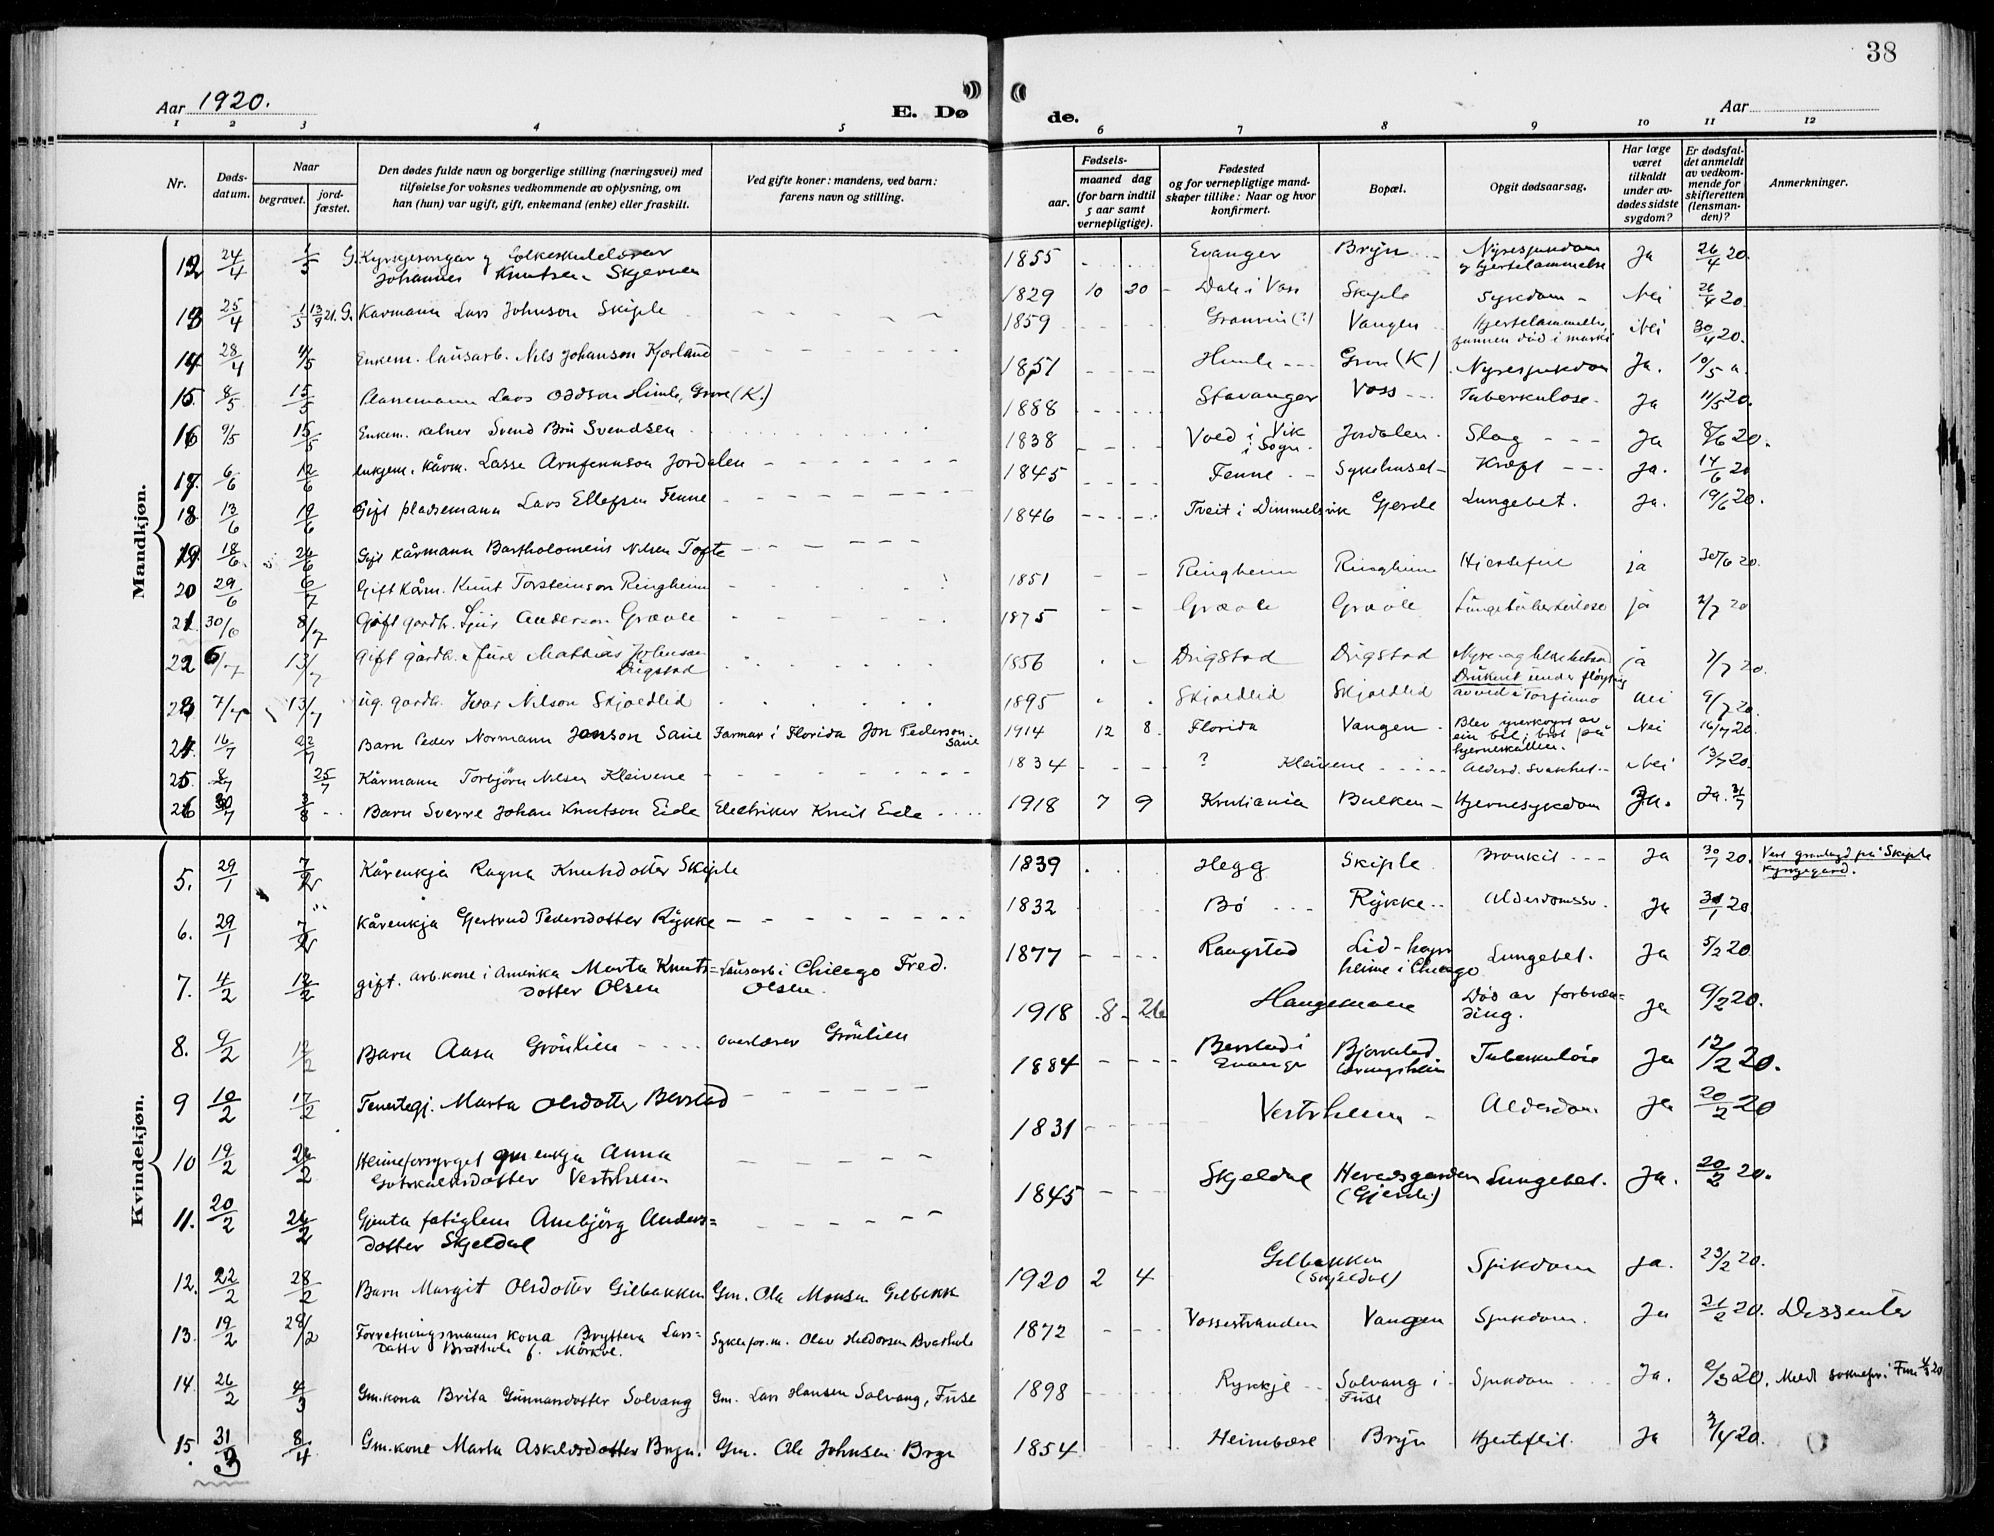 38
Aar 1920.
E. Dø
de.
Aar
1 2 3 4 5 6 7 8 9 10 11 12
Nr.
Døds-
datum.
Naar
begravet.
jord-
fæstet.
Den dødes fulde navn og borgerlige stilling (næringsvei) med
tilføielse for voksnes vedkommende av oplysning, om
han (hun) var ugift, gift, enkemand (enke) eller fraskilt.
Ved gifte koner: mandens, ved barn:
farens navn og stilling.
Fødsels-
aar.
maaned dag
(for barn indtil
5 aar samt
vernepligtige).
Fødested
og for vernepligtige mand-
skaper tillike: Naar og hvor
konfirmert.
Bopæl.
Opgit dødsaarsag.
Har læge
været
tilkaldt
under av-
dødes sidste
sygdom?
Er dødsfal-
det anmeldt
av vedkom-
mende for
skifteretten
(lensman-
den)?
Anmerkninger.
Mandkjøn.
12 24/4 1/5 G. Kyrkjesongar og folkeskulelærar Johannes Knutsen Skjerven 1855 Evanger Bryn Nyresjukdom og hjertelammelse Ja 26/4 20.
13 25/4 1/5 13/9 21. G. Kårmann Lars Johnson Skiple 1829 10 20 Dale i Voss Skiple Sykdom Nei 26/4 20.
14 28/4 4/5 Enkem. lausarb. Nils Johanson Kjørland 1859 Granvin (?) Vangen Hjertelammelse, funnen død i marki Nei 30/4 20.
15. 8/5 15/5 Plassemann Lars Oddson Himle, Grove (K.) 1851 Himle Grove (K) Nyresjukdom Ja. 10/5
16 9/5 15/5 Enkem. kelner Svend Svendsen 1888 Stavanger Voss Tuberkulose Ja 11/5 20.
17. 6/6 12/6 Enkjem. kårm. Lasse Arnfinnson Jordalen 1838 i Vik i Sogn Jordalen Slag Ja 8/6 20.
18 13/6 19/6 Gift pladsemann Lars Ellefsen Fenne 1845 Fenne Sykehuset Kræft Ja. 14/6 20
19. 18/6 26/6 Gift Kårmann Bartholomeus Nilsen Tofte 1846 Tveit i Dimmelsvik Gjerde Lungebet. Ja. 19/6 20.
20 29/6 6/7 Gift Kårm. Knut Torsteinson Ringheim 1851 Ringheim Ringheim Hjertefeil ja 30/6 20.
21. 30/6 8/7 Gift gardb. Anderson Grævle 1875 Grævle Grævle Lungetuberkulose ja 2/7 20
22 6/7 13/7 Gift gardb. Mathias Johnson Dugstad 1856 Dugstad Dugstad ja 7/7 20.
23 7/7 13/7 ug. gardb. Ivar Nilson Skjældlid 1895 Skjældlid Skjeldlid Druknet under fløyting av ved i Torfinno nei 9/7 20.
24. 16/7 22/7 Barn Peder Normann Jonson Saue Farmar i Florida Jon Pederson Saue 1914 12 8. Florida Vangen Blev yverkoyrt av ein bil; brot på hjerneskallen. Nei 16/7 20.
25. 8/7 25/7 Kårmann Torbjørn Nilsen Kleivene 1834 ? Kleivene Alderd. svakhet Nei 13/7 20.
26 30/7 3/8 Barn Sverre Johan Knutson Eide Elektriker Knut Eide 1918 7 9 Kristiania Bulken Hjernesykdom Ja. Ja. 31/7
Kvindekjøn.
5. 29/1 7/2 Kårenkja Ragna Knutsdotter Skiple 1839 Hegg Skiple Bronkit Ja 30/1 20. Vert gravlagd på Skiple kyrkjegard.
6. 29/1 7/2 Kårenkja Gjertrud Pedersdotter Rykke 1832 Bø Rykke Alderdomssv. Ja 31/1 20.
7. 4/2 12/2 gift. arb.kone i Amerika Marta Knutsdotter Olsen Lausarb i Chicago Fred. Olsen. 1877 Raugstad Lid - heime i Chicago Lungebet. Ja 5/2 20
8. 9/2 12/2 Barn Aasa Grønlien overlærer Grønlien 1918 8 26 Haugamoen Død av forbrænding. Ja 9/2 20.
9 10/2 17/2 Tenestegj. Marta Olsdotter Berstad 1884 Berstad i Evanger Bjørkstad Tuberkulose Ja 12/2 20.
10 19/2 26/2 Heimeforsyrget gm enkja Anna Gotskalksdotter Vestrheim 1831 Vestrheim Alderdom Ja 20/2 20
11. 20/2 26/2 Gjenta fatiglem Ambjörg Andersdotter Skjeldal 1845 Skjeldal Heradsgarden (Gjerde) Lungebet. Ja. 20/2 20.
12. 22/2 28/2 Barn Margit Olsdotter Gilbakken Gm. Ola Monsen Gilbakk 1920 2 4 Gilbakken (Skjeldal) Sjukdom Ja. 23/2 20.
13. 19/2 28/2 Forretningsmanns kona Bryttera Larsdotter Brathole f. Mörkve. Sykkefor.m. Olav Brathole 1872 Vossestranden Vangen Sjukdom. Ja 21/2 20. Dissenter
14. 26/2 4/3 Gm.kona Brita Gunnarsdotter Solvang Gm. Lars Hansen Solvang, Fuse 1898 Rykkje Solvang i Fuse Sjukdom Ja. 9/3 20. Meldt soknepr. i Fuse
15. 31/3 8/4 Gm.kone Marta Askildsdotter Bryn. Gm. Ole Johnsen Bryn 1854 Heimbære Bryn Hjertefeil. Ja 3/4 20.